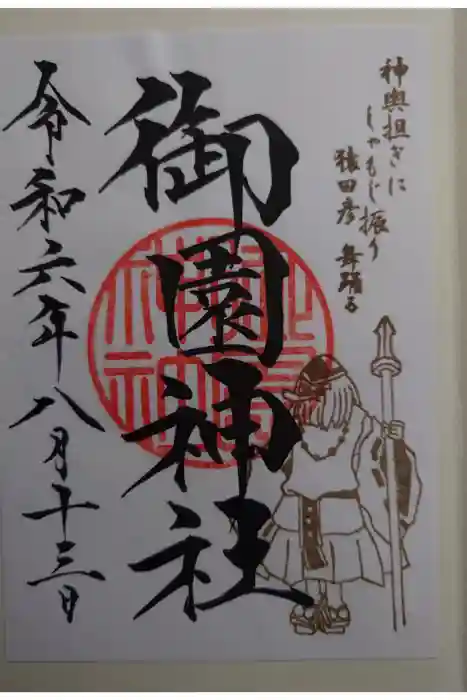 神輿担ぎに
しゃもじ振り
猿田彦 舞踊る
御園神社
令和六年八月十三日